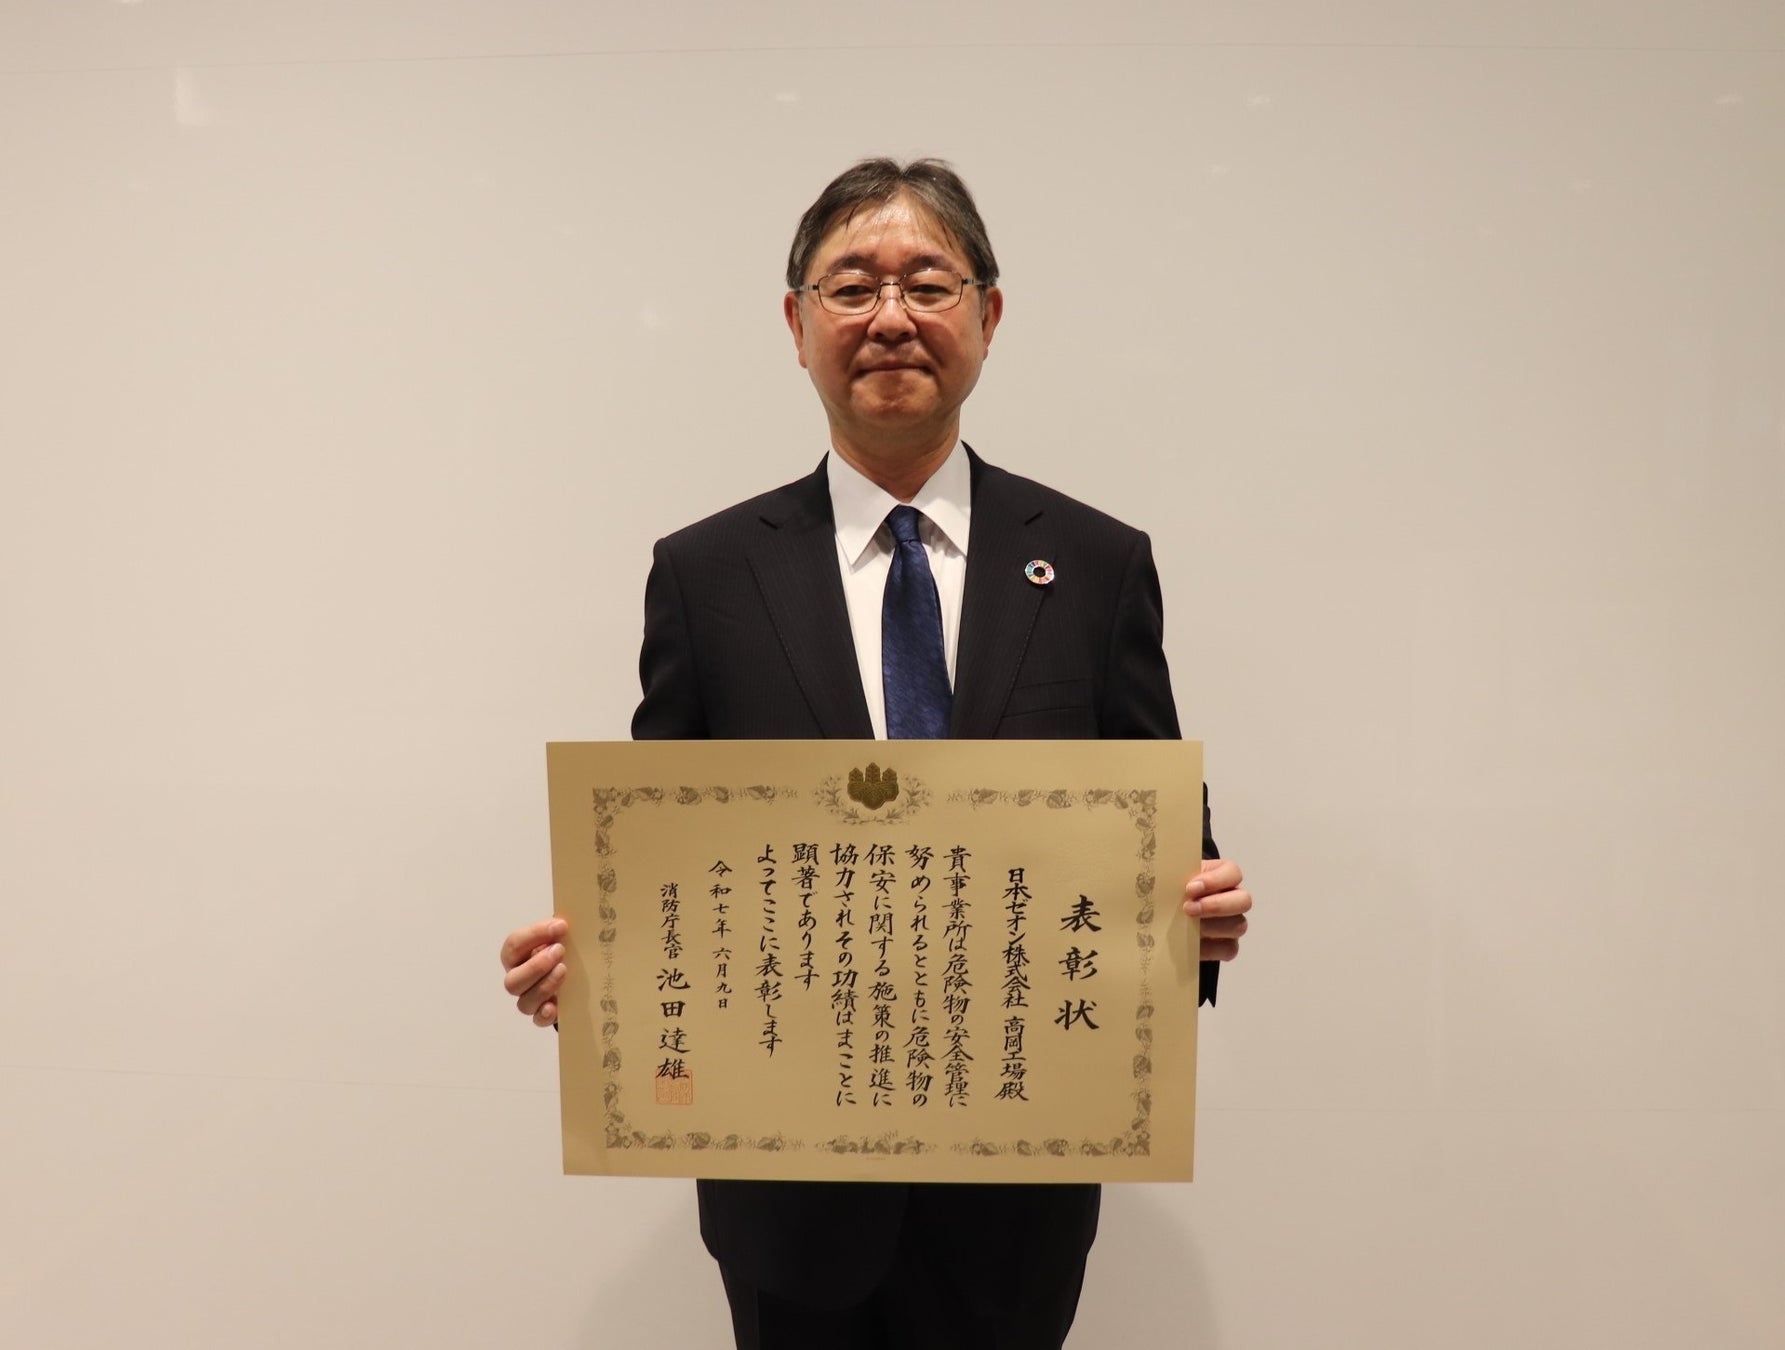 表彰状
日本ゼオン株式会社 高岡工場殿
貴事業所は危険物の安全管理に
努められるとともに危険物の
保安に関する施策の推進に
協力されその功績はまことに
顕著であります
よってここに表彰します
令和七年六月九日
消防庁長官 池田達雄